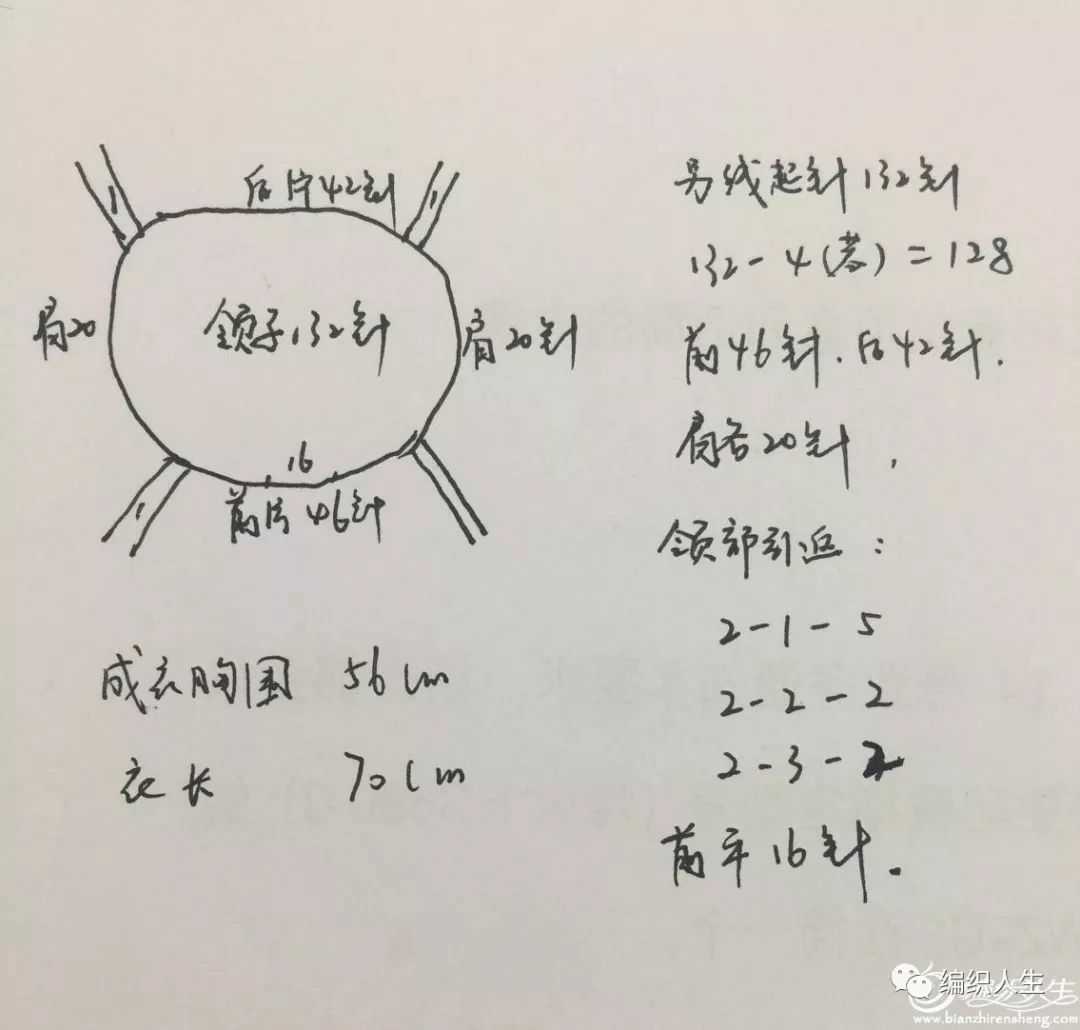 后片42针
1
1
肩20
领子132针
肩20针
16
前片46针
1
成衣胸围 56cm
衣长 70cm
另线起针132针
132-4(茎)=128
前46针.后42针.
肩各20针,
领部引返:
2-1-5
2-2-2
2-3-2
前平16针.
编织人生
编织人生
www.bianzhirensheng.com